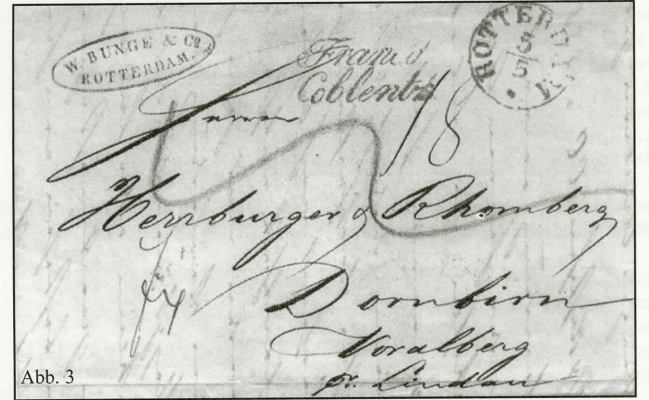 W. BUNGE & Co
ROTTERDAM.
Franco
Coblentz
ROTTERDAM
3
5
18
Herren
Herrburger & Rhomberg
Dornbirn
Voralberg
pr. Lindau
Abb. 3